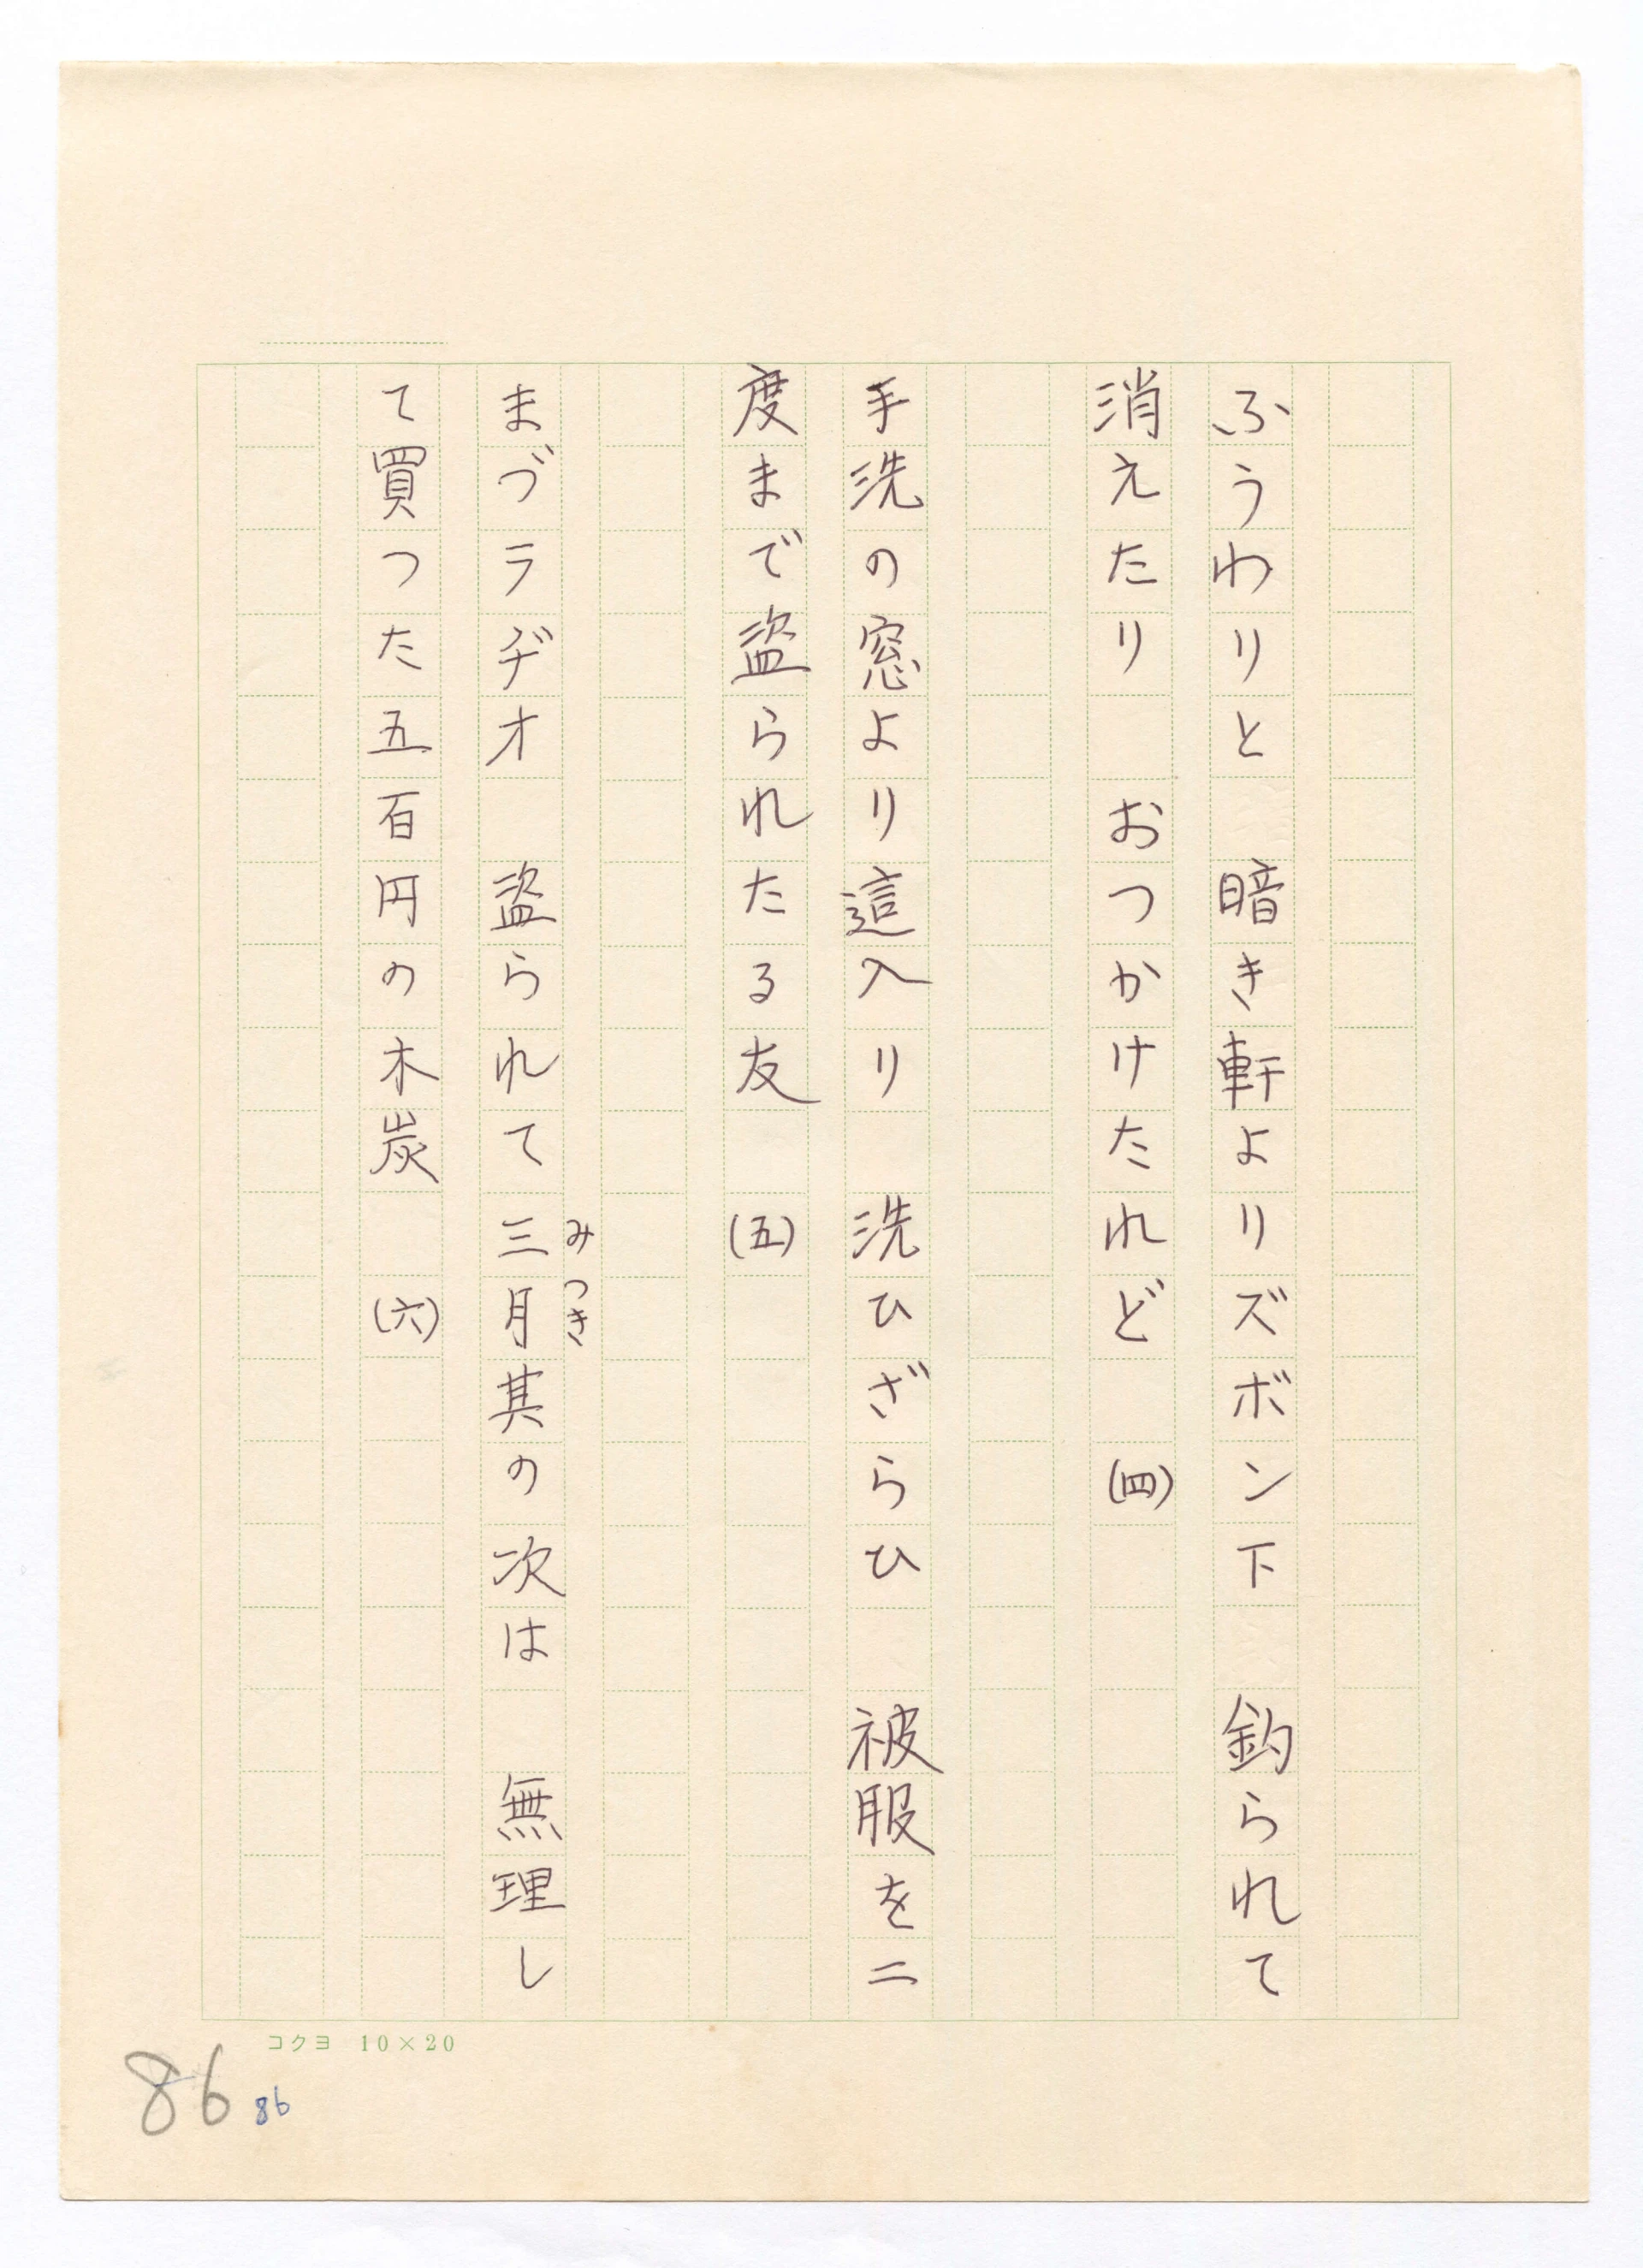 ふうわりと　暗き軒よりズボン下　釣られて
消えたり　おつかけたれど　(四)
手洗の窓より這入り　洗ひざらひ　被服を二
度まで盗られたる友　(五)
まづラヂオ　盗られて三月其の次は　無理し
みつき
て買つた五百円の木炭　(六)
コクヨ 10×20
86
86